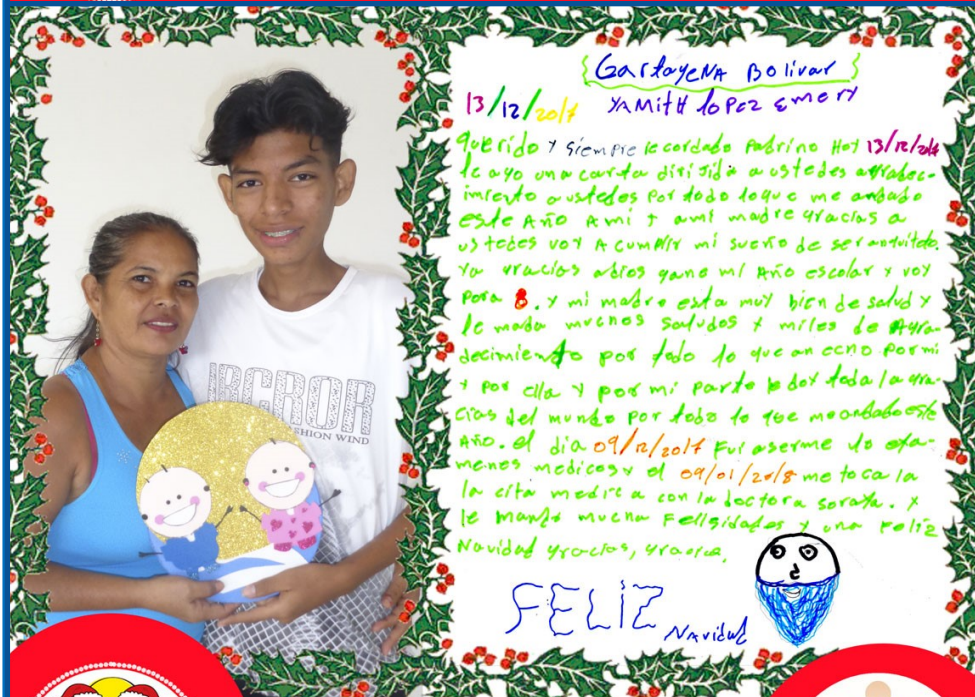 {Gartagena Bolivar}
13/12/2017 YAMith lopez Emery
querido y siempre recordado padrino Hoy 13/12/2017
le ago una carta dirijida a ustedes agradec-
imiento a ustedes por todo loque me andado
este Año Ami y ami madre gracias a
ustedes voy A cumplir mi sueño de ser
ya gracias adios gane mi Año escolar y voy
para 8. y mi madre esta muy bien de salud y
le mada muchos saludos y miles de Agra-
decimiento por todo lo que an echo por mi
y por ella y por mi parte le doy toda la gra-
cias del mundo por todo lo que me andado este
Año. el dia 09/12/2017 fui aserme lo exa-
menes medicos y el 09/01/2018 me toca la
la cita medica con la doctora soraya. y
le mando mucha Feligidades y una Feliz
Navidad gracias, gracias,
FELIZ
Navidad
ARGROR
SHION WIND